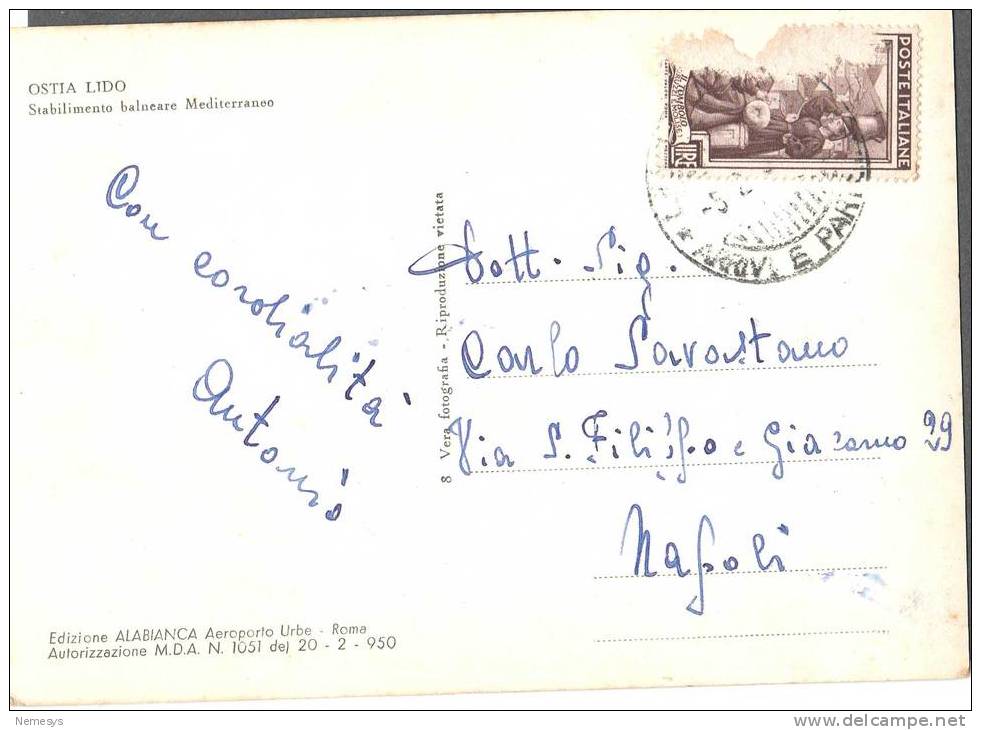 OSTIA LIDO
Stabilimento balneare Mediterraneo
Con cordialità
Antonio
Edizione ALABIANCA Aeroporto Urbe - Roma
Autorizzazione M.D.A. N. 1051 del 20 - 2 - 950
8 Vera fotografia - Riproduzione vietata
POSTE ITALIANE
LIRE
ARRIVI E PAR
Dott. Sig.
Carlo Savastano
Via S. Filippo e Giacomo 29
Napoli
Nemesys
www.delcampe.net